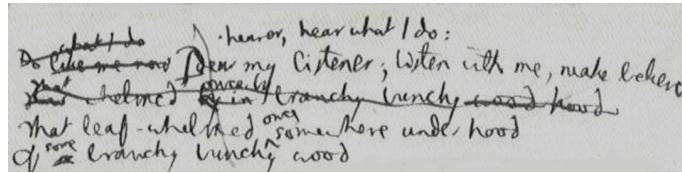 what I do hearer, hear what I do:
Do like me now Dear my listener, listen with me, make believe
whelmed in branchy bunchy wood hood
That leaf-whelmed once somewhere under hood
Of some branchy bunchy wood